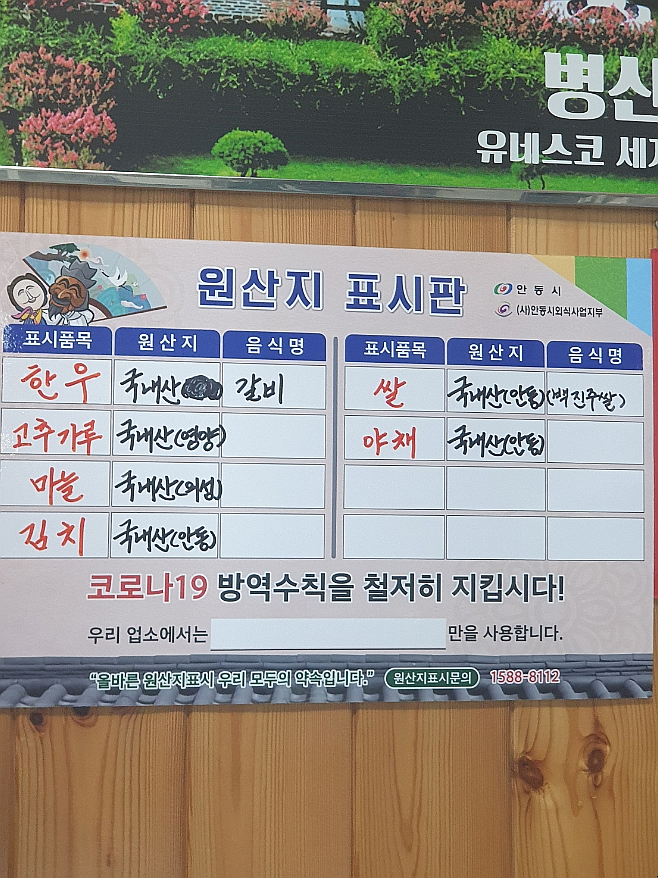 병산
유네스코 세
원산지 표시판
안동시
(사)안동시외식사업지부
표시품목 원산지 음식명 표시품목 원산지 음식명
한우 국내산 갈비 쌀 국내산(안동) (백진주쌀)
고추가루 국내산(영양) 야채 국내산(안동)
마늘 국내산(의성)
김치 국내산(안동)
코로나19 방역수칙을 철저히 지킵시다!
우리 업소에서는 만을 사용합니다.
"올바른 원산지표시 우리 모두의 약속입니다." 원산지표시문의 1588-8112